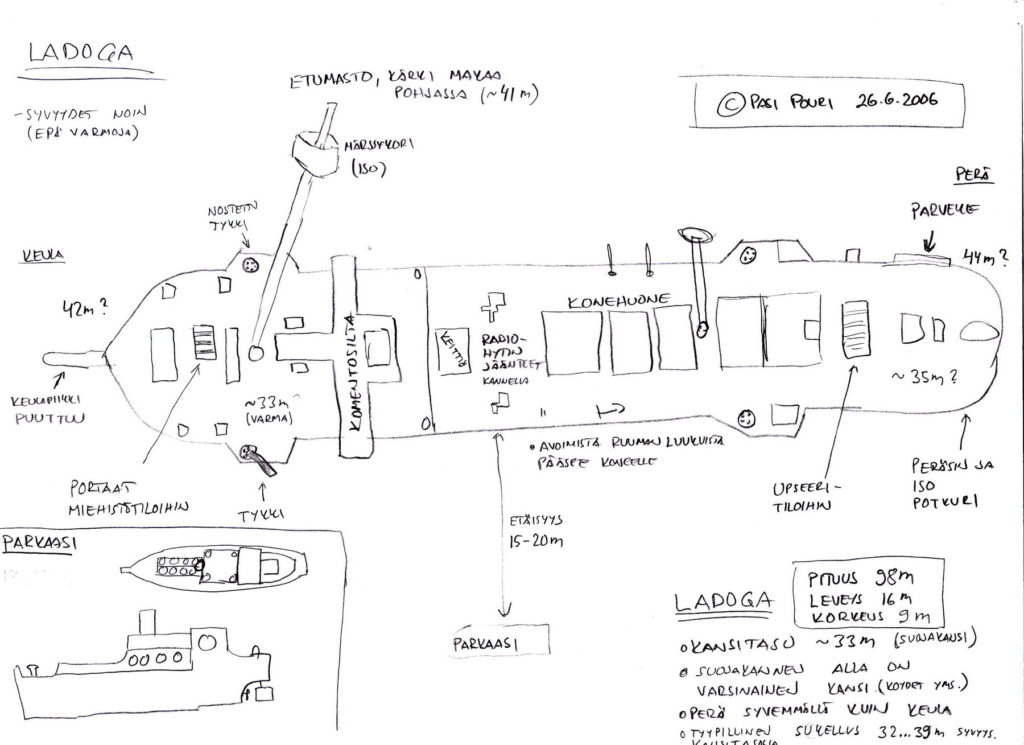 LADOGA
-SYVYYDET NOIN
(EPÄVARMOJA)
ETUMASTO, KÄRKI MAKAA
POHJASSA (~41m)
© PASI POURI 26.6.2006
MÄRSSYKORI
(ISO)
NOSTETIN
TYKKI
KEULA
42m?
PERÄ
PARVEKE
44m?
KOMENTOSILTA
KEITTIÖ
RADIO-
HYTIN
JÄÄNTEET
KANNELLA
KONEHUONE
KEULAPIIKKI
PUUTTUU
~33m
(VARMA)
~35m?
PORTAAT
MIEHISTÖTILOIHIN
TYKKI
• AVOIMISTA RUUMAN LUUKUISTA
PÄÄSEE KONEELLE
UPSEERI-
TILOIHIN
PERÄSIN JA
ISO
POTKURI
ETÄISYYS
15-20m
PARKAASI
PARKAASI
LADOGA
PITUUS 98m
LEVEYS 16m
KORKEUS 9m
• KANSITASO ~33m (SUOJAKANSI)
• SUOJAKANNEN ALLA ON
VARSINAINEN KANSI. (KÖYDET YMS.)
• PERÄ SYVEMMÄLLÄ KUIN KEULA
• TYYPILLINEN SUKELLUS 32...39m SYVYYS.